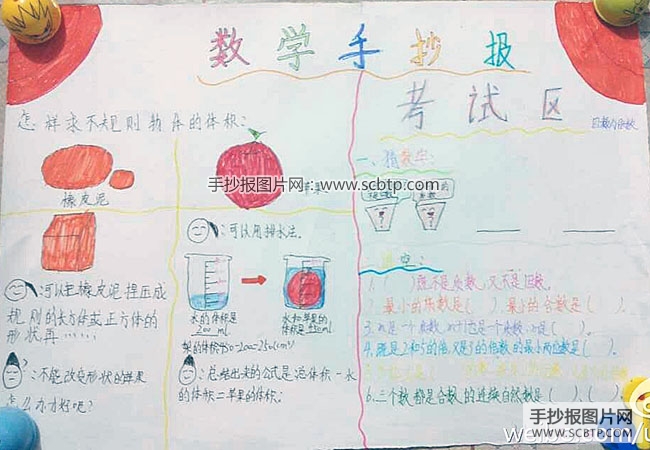 数学手抄报
怎样求不规则物体的体积:
橡皮泥
苹果
手抄报图片网:www.scbtp.com
:可以把橡皮泥捏压成
规则的长方体或正方体的
形状再……
:不能改变形状的苹果
怎么办才好呢?
:可以用排水法。
水的体积是
200ml
水和苹果的
体积是450ml
梨的体积450-200=250(cm³)
:总结出来的公式是总体积-水
的体积=苹果的体积:
考试区
因数与倍数
一、猜数字:
二、填空:
1.( )既不是质数,又不是因数。
2.最小的质数是( ),最小的合数是( )。
4.既是2和5的倍,又是3的倍数的最小两位数是( )。
6.三个数都是合数的连续自然数是( )、( )、
手抄报图片网
WWW.SCBTP.COM